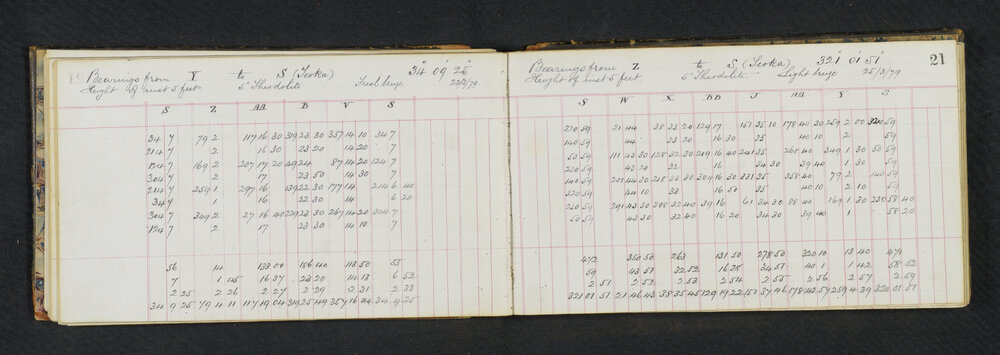 Bearings from Y to S (Teoka) 34° 09' 25"
Height of inst 5 feet 5" Theodolite
S Z AA B V S
34 7 79 2 117 16 30 319 23 30 357 14 10 34 7
214 7 2 16 30 23 20 14 20 7
124 7 169 2 207 17 20 49 24 87 14 20 124 7
304 7 2 17 23 50 14 30 7
214 7 259 1 297 16 139 22 30 177 14 214 6 40
34 7 1 16 22 30 14 6 20
304 7 349 2 27 16 40 229 23 30 267 14 20 304 7
124 7 2 17 23 30 14 10 7
56 14 133 00 186 40 113 50 55
7 1 45 16 37 23 20 14 13 6 52
2 25 2 26 2 27 2 29 2 31 2 33
34 9 25 79 4 11 117 19 04 319 25 49 357 16 44 34 9 25
21
Bearings from Z to S (Teoka) 321° 01' 51"
Height of inst 5 feet 5" Theodolite Light breeze 25/3/79
S W X BB J AA Y S
320 59 21 44 38 33 20 129 17 151 35 10 178 40 30 259 2 00 320 59
140 59 44 33 20 16 30 35 40 10 2 59
50 59 111 43 30 128 32 30 219 16 40 241 35 268 40 349 1 30 50 59
230 59 43 20 32 16 34 30 39 40 1 30 59
140 59 201 44 30 218 33 30 309 16 30 331 35 358 40 79 2 140 59
320 59 44 10 33 16 50 35 40 10 2 10 59
230 59 291 43 30 308 32 40 39 16 61 34 30 88 40 169 1 30 230 58 40
50 59 43 30 32 40 16 20 34 30 39 40 1 58 20
472 350 50 263 131 50 278 50 320 10 13 40 471
59 43 51 32 52 16 28 34 51 40 1 1 42 58 52
2 51 2 52 2 53 2 54 2 55 2 56 2 57 2 59
321 01 51 21 46 43 38 35 45 129 19 22 151 37 46 178 42 57 259 4 39 320 01 51